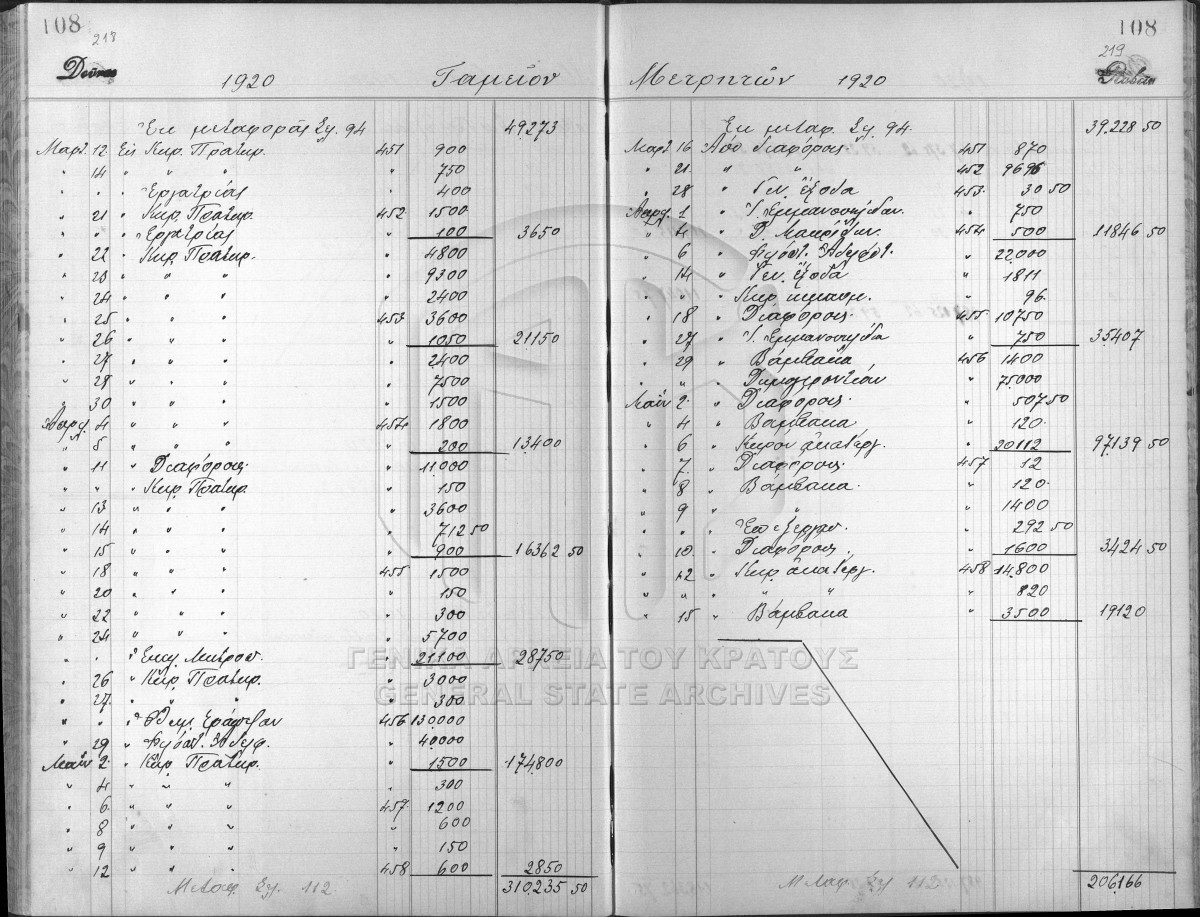 108
218
Δοῦναι 1920 Ταμεῖον
Ἐκ μεταφορᾶς Σελ. 94 49.273
Μαρτ. 12 Εἰς Κηρ. Πρατηρ. 451 900
" 14 " " " " 750
" " Ἐργατρίας " 400
" 21 " Κηρ. Πρατηρ. 452 1500
" " " Ἐργατρίας " 100 3650
" 22 " Κηρ. Πρατηρ. " 4800
" 23 " " " " 9300
" 24 " " " " 2400
" 25 " " " 453 3600
" 26 " " " " 1050 21150
" 27 " " " " 2400
" 28 " " " " 7500
" 30 " " " " 1500
Ἀπρλ. 4 " " " 454 1800
" 5 " " " " 200 13400
" 11 " Διαφόρους " 11000
" " " Κηρ. Πρατηρ. " 150
" 13 " " " " 3600
" 14 " " " " 712 50
" 15 " " " " 900 16362 50
" 18 " " " 455 1500
" 20 " " " " 150
" 22 " " " " 300
" 24 " " " " 5700
" " " 21100 28750
" 26 " Κηρ. Πρατηρ. " 3000
" 27 " " " " 300
" " " 456 130000
" 29 " Φιλόπτ. Ἀδελφ. " 40000
Μαΐυ 2 " Κηρ. Πρατηρ. " 1500 174.800
" 4 " " " " 300
" 6 " " " 457 1200
" 8 " " " " 600
" 9 " " " " 150
" 12 " " " 458 600 2850
Μεταφ. Σελ. 112 310.235 50
108
219
Μετρητῶν 1920 Λαβεῖν
Ἐκ μεταφ. Σελ. 94 39.228 50
Μαρτ. 16 Ἀπὸ Διαφόρους 451 870
" 21 " " 452 9696
" 28 " Γεν. ἔξοδα 453 30 50
Ἀπρλ. 1 " Ἰ. Ἐμμανουηλίδην " 750
" 4 " Δ. 454 500 11846 50
" 6 " Φιλόπτ. Ἀδελφότ. " 22.000
" 14 " Γεν. ἔξοδα " 1811
" " " Κηρ. " 96
" 18 " Διαφόρους 455 10750
" 27 " Ἰ. Ἐμμανουηλίδην " 750 35407
" 29 " Βάμβακα 456 1400
" " " Δημογεροντίαν " 75.000
Μαΐυ 2 " Διαφόρους " 507 50
" 4 " Βάμβακα " 120
" 6 " Κηρὸν ἀκατέργ. " 20112 97139 50
" 7 " Διαφόρους 457 12
" 8 " Βάμβακα " 120
" 9 " " " 1400
" " " " 292 50
" 10 " Διαφόρους " 1600 3424 50
" 12 " Κηρ. ἀκατέργ. 458 14.800
" " " " " " 820
" 15 " Βάμβακα " 3500 19120
Μεταφ. Σελ 112 206,166
ΓΕΝΙΚΑ ΑΡΧΕΙΑ ΤΟΥ ΚΡΑΤΟΥΣ
GENERAL STATE ARCHIVES